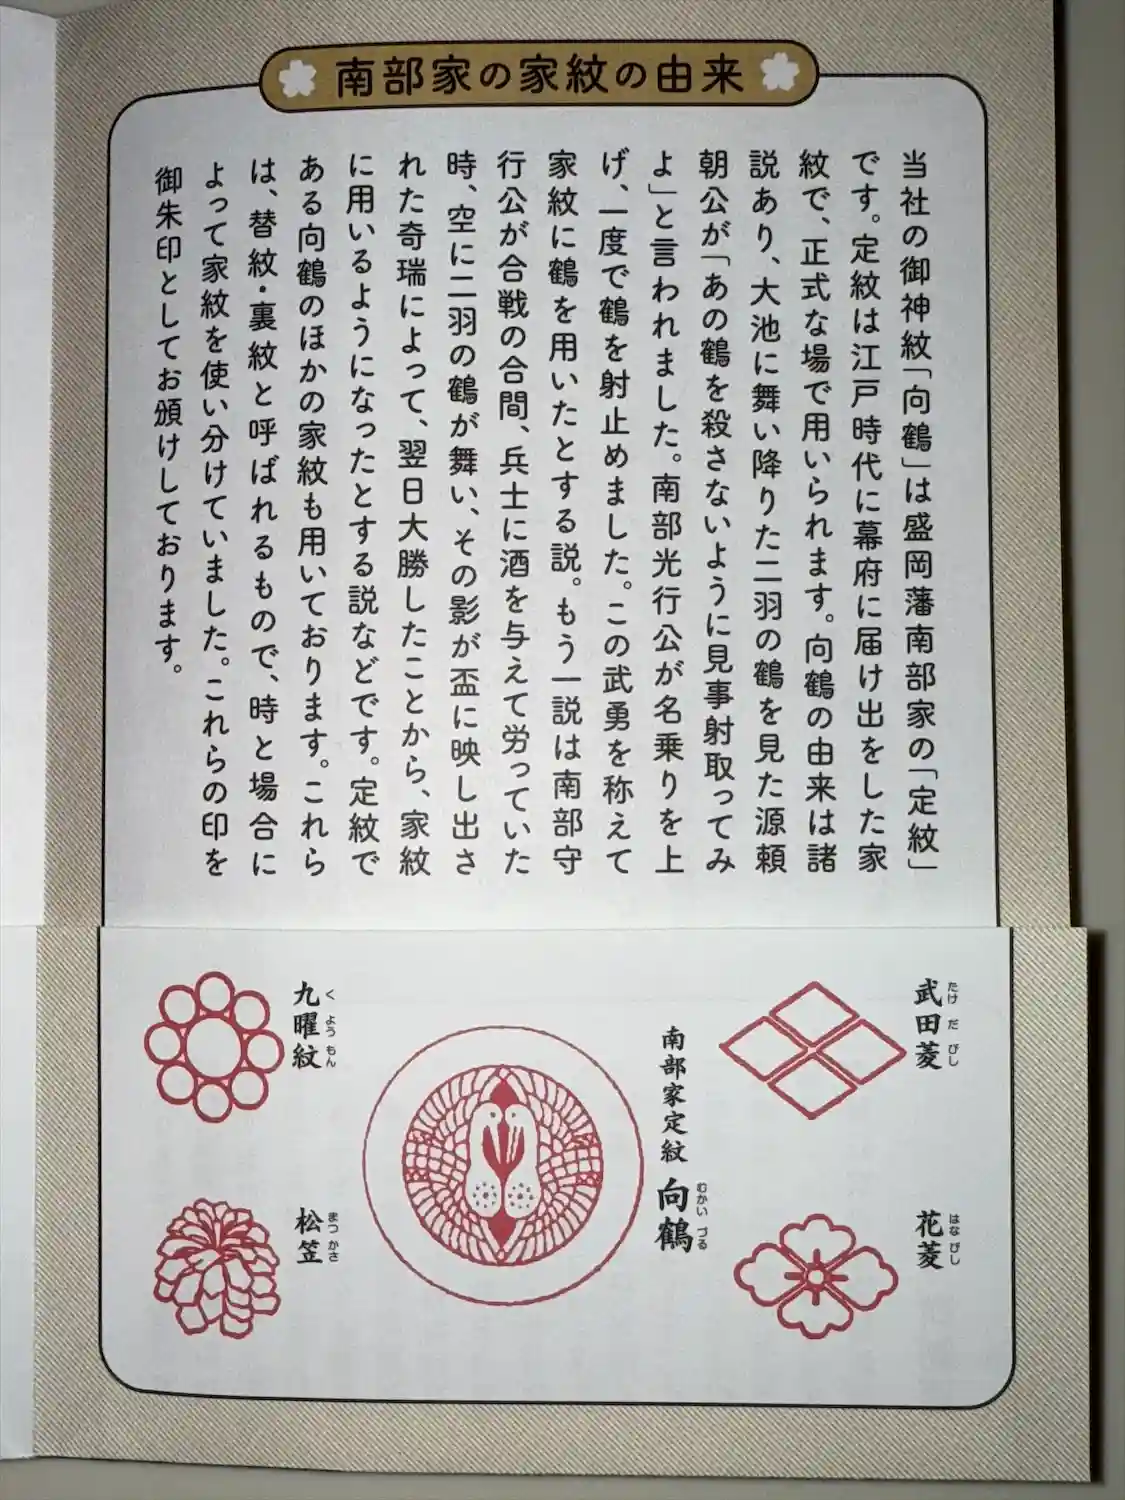 南部家の家紋の由来
当社の御神紋「向鶴」は盛岡藩南部家の「定紋」
です。定紋は江戸時代に幕府に届け出をした家
紋で、正式な場で用いられます。向鶴の由来は諸
説あり、大池に舞い降りた二羽の鶴を見た源頼
朝公が「あの鶴を殺さないように見事射取ってみ
よ」と言われました。南部光行公が名乗りを上
げ、一度で鶴を射止めました。この武勇を称えて
家紋に鶴を用いたとする説。もう一説は南部守
行公が合戦の合間、兵士に酒を与えて労っていた
時、空に二羽の鶴が舞い、その影が盃に映し出さ
れた奇瑞によって、翌日大勝したことから、家紋
に用いるようになったとする説などです。定紋で
ある向鶴のほかの家紋も用いております。これら
は、替紋・裏紋と呼ばれるもので、時と場合に
よって家紋を使い分けていました。これらの印を
御朱印としてお頒けしております。
武田菱
たけだびし
花菱
はなびし
南部家定紋 向鶴
むかいづる
九曜紋
くようもん
松笠
まつかさ